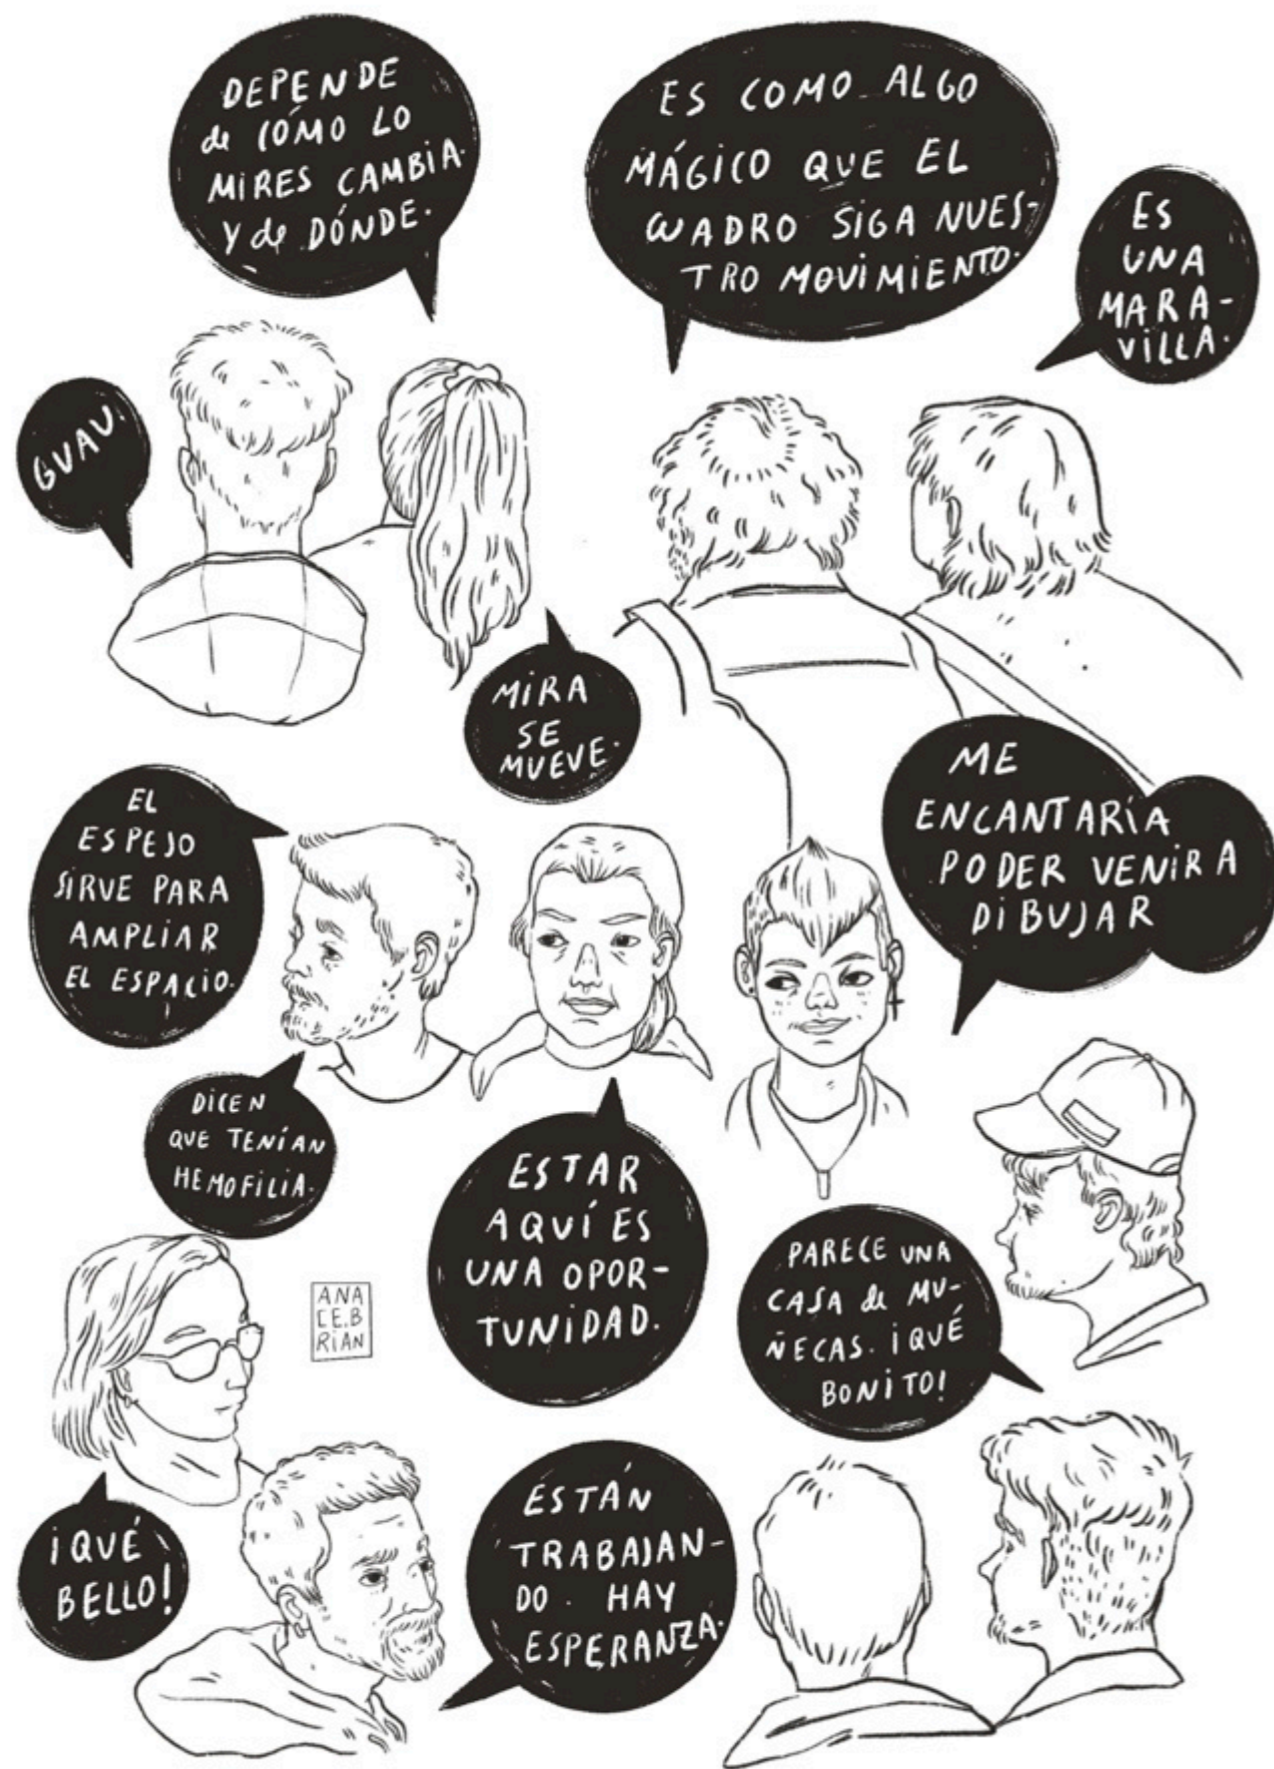 DEPENDE
de CÓMO LO
MIRES CAMBIA.
Y de DÓNDE.
ES COMO ALGO
MÁGICO QUE EL
CUADRO SIGA NUES-
TRO MOVIMIENTO.
ES
UNA
MARA-
VILLA.
GUAU.
MIRA
SE
MUEVE.
EL
ESPEJO
SIRVE PARA
AMPLIAR
EL ESPACIO.
ME
ENCANTARÍA
PODER VENIR A
DIBUJAR
DICEN
QUE TENÍAN
HEMOFILIA.
ESTAR
AQUÍ ES
UNA OPOR-
TUNIDAD.
PARECE UNA
CASA de MU-
ÑECAS. ¡QUÉ
BONITO!
ANA
CEB
RIAN
¡QUÉ
BELLO!
ESTÁN
TRABAJAN-
DO. HAY
ESPERANZA.